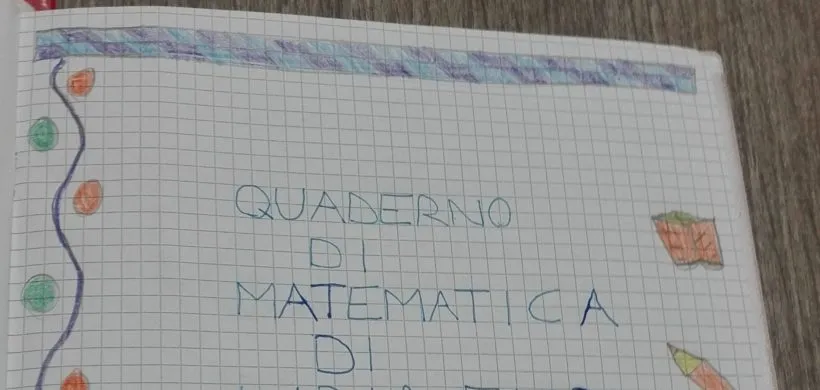 QUADERNO
DI
MATEMATICA
DI